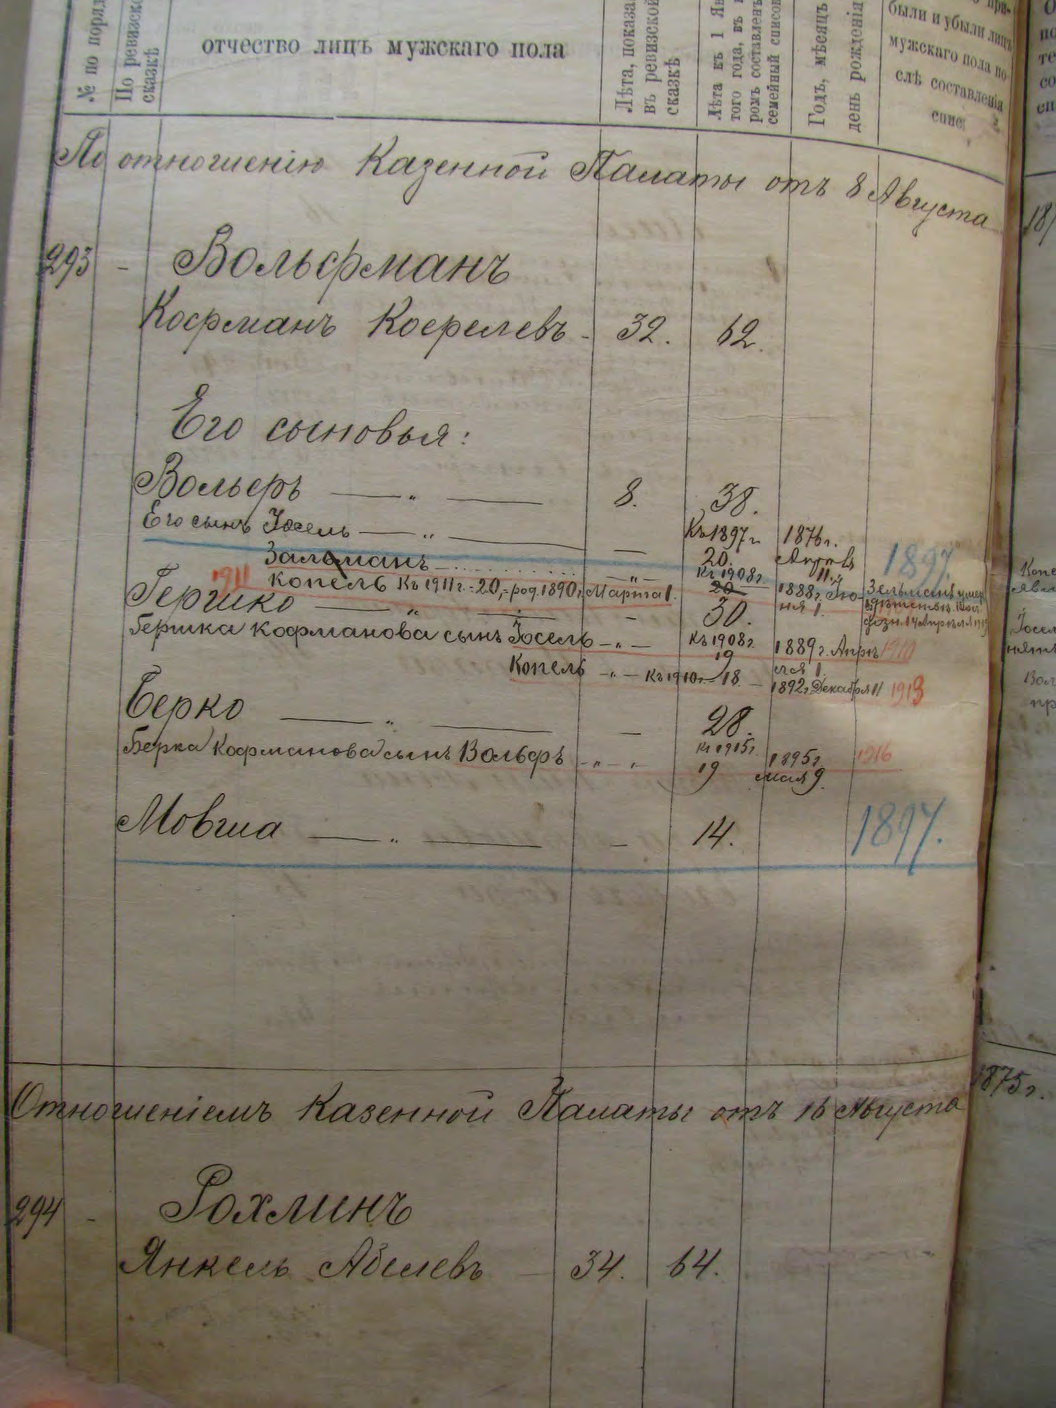 № по поряд
По ревизско
сказкѣ
отчество лицъ мужскаго пола
Лѣта, показа
въ ревизской
сказкѣ
Лѣта къ 1 Ян
того года, въ
ромъ составленъ
семейный списокъ
Годъ, мѣсяцъ
день рожденія
были и убыли лицъ
мужскаго пола по-
слѣ составленія
По отношенію Казенной Палаты отъ 8 Августа
293 - Вольфманъ
Кофманъ Кофелевъ - 32. 62.
Его сыновья:
Вольфъ — „ — 8. 38.
Его сынъ Іосель — „ — — Къ 1897 г. 20. 1876 г. Апрѣль 11. 1897.
Залманъ - „ - Къ 1908 г. 20 1888 г. Iю-
ня 1.
1911 Копель Къ 1911 г. - 20, - род. 1890 г. Марта 1.
Гершко — „ — - 30.
Гершка Кофманова сынъ Іосель - „ - Къ 1908 г. 19 1889 г. Апрѣ
ля 1. 1910
Копель - „ - Къ 1910 г. - 18 - 1892 г. Декабря 11 1913
Берко — „ — — 28.
Берка Кофманова сынъ Вольфъ - „ - Къ 1915 г. 19 1895 г. мая 9. 1916
Мовша — „ — - 14. 1897.
Отношеніемъ Казенной Палаты отъ 16 Августа
1875 г.
294 - Рохлинъ
Янкель Абелевъ - 34. 64.